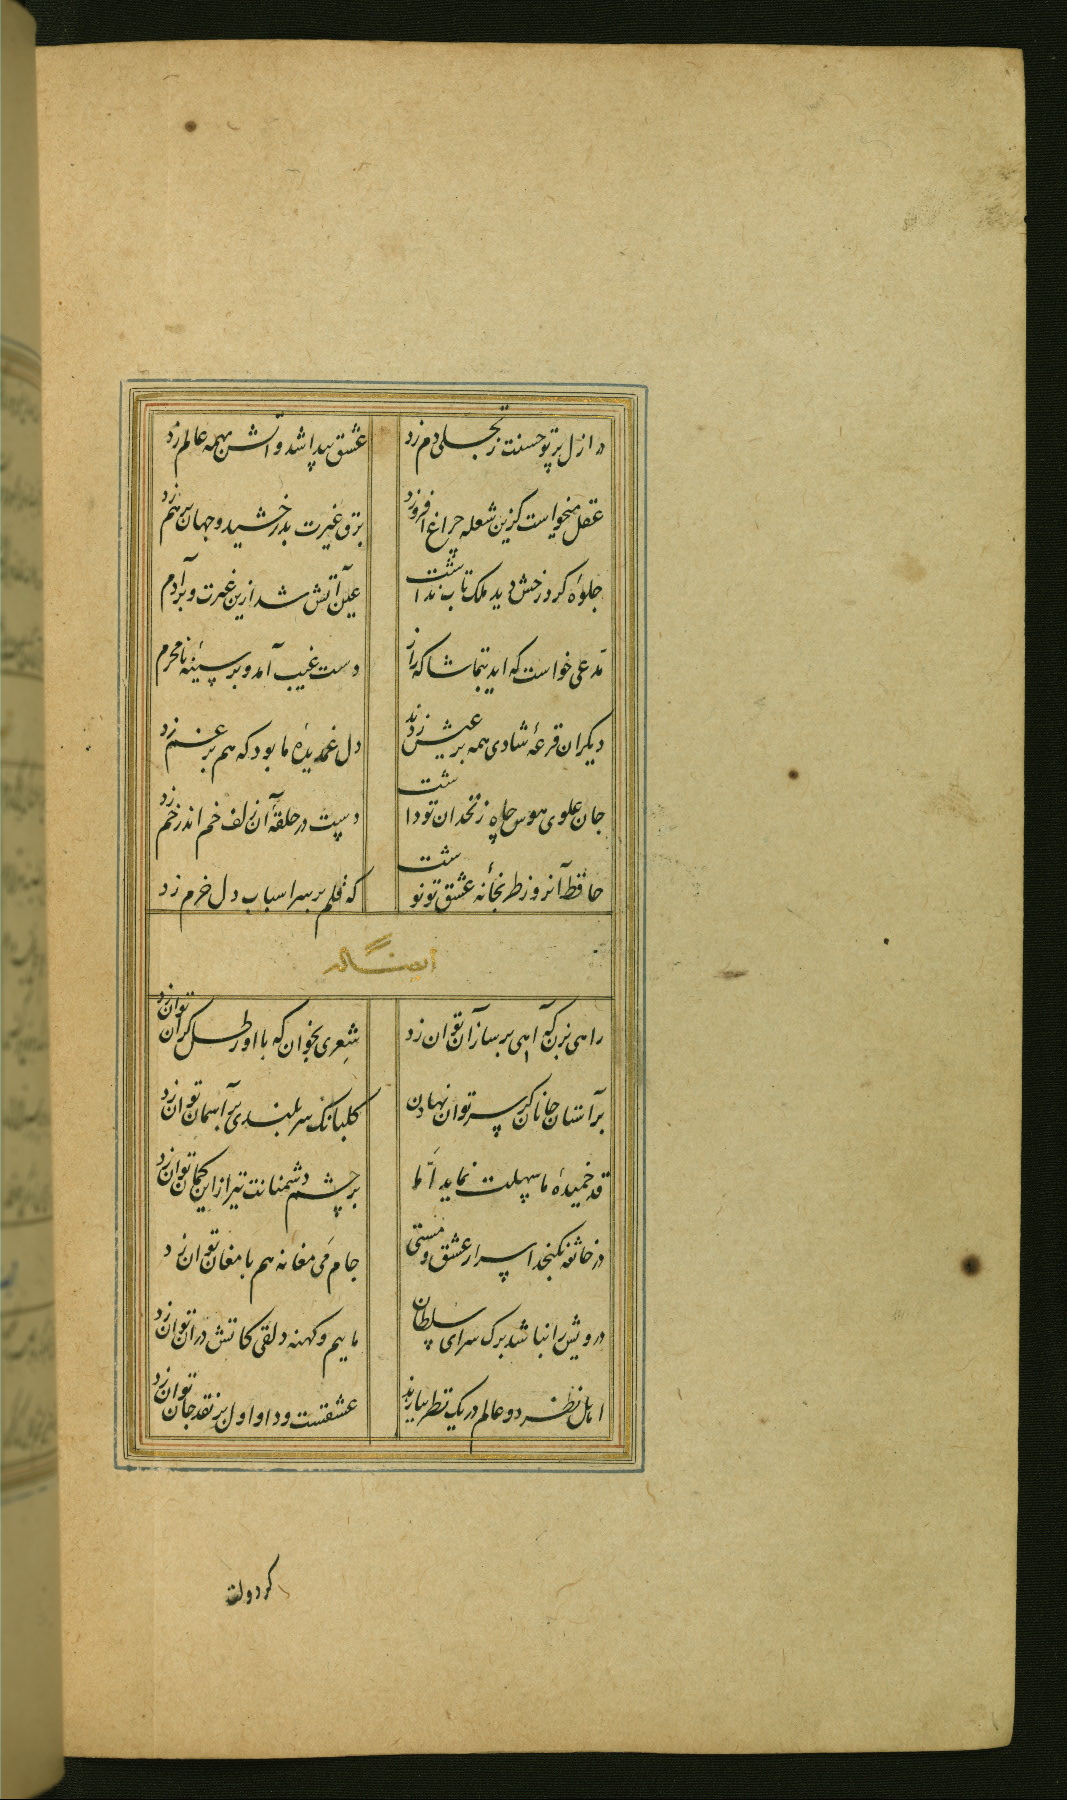 در ازل پرتو حسنت ز تجلی دم زد عشق پیدا شد و آتش بهمه عالم زد
عقل میخواست کزین شعله چراغ افروزد برق غیرت بدرخشید و جهان برهم زد
جلوهٔ کرد رخش دید ملک تاب نداشت عین آتش شد ازین غیرت و بر آدم
مدعی خواست که اید بتماشاکه راز دست غیب آمد و بر سینهٔ نامحرم
دیکران قرعهٔ شادی همه بر عیش زدند دل غمدیدهٔ ما بود که هم بر غم زد
جان علوی هوس چاه زنخدان تو داشت دست در حلقهٔ آن زلف خم اندر خم زد
حافظ آنروز طربخانهٔ عشق تو نوشت که قلم بر سر اسباب دل خرم زد
ایضاً له
راهی بزن که آهی بر ساز آن توان زد شعری بخوان که با او رطل کران توان زد
بر آستان جانان کر سر توان نهادن کلبانک سربلندی بر آسمان توان زد
قد خمیدهٔ ما سهلت نماید اَمّا بر چشم دشمنانت تیر ازین کمان توان زد
در خانقه نکنجد اسرار عشق و مستی جام می مغانه هم با مغان توان زد
درویش را نباشد برک سرای سلطان ماییم و کهنه دلقی کاتش در آن توان زد
اهل نظر دو عالم در یک نظر ببازند عشقست و داو اول بر نقد جان توان زد
کر دولت